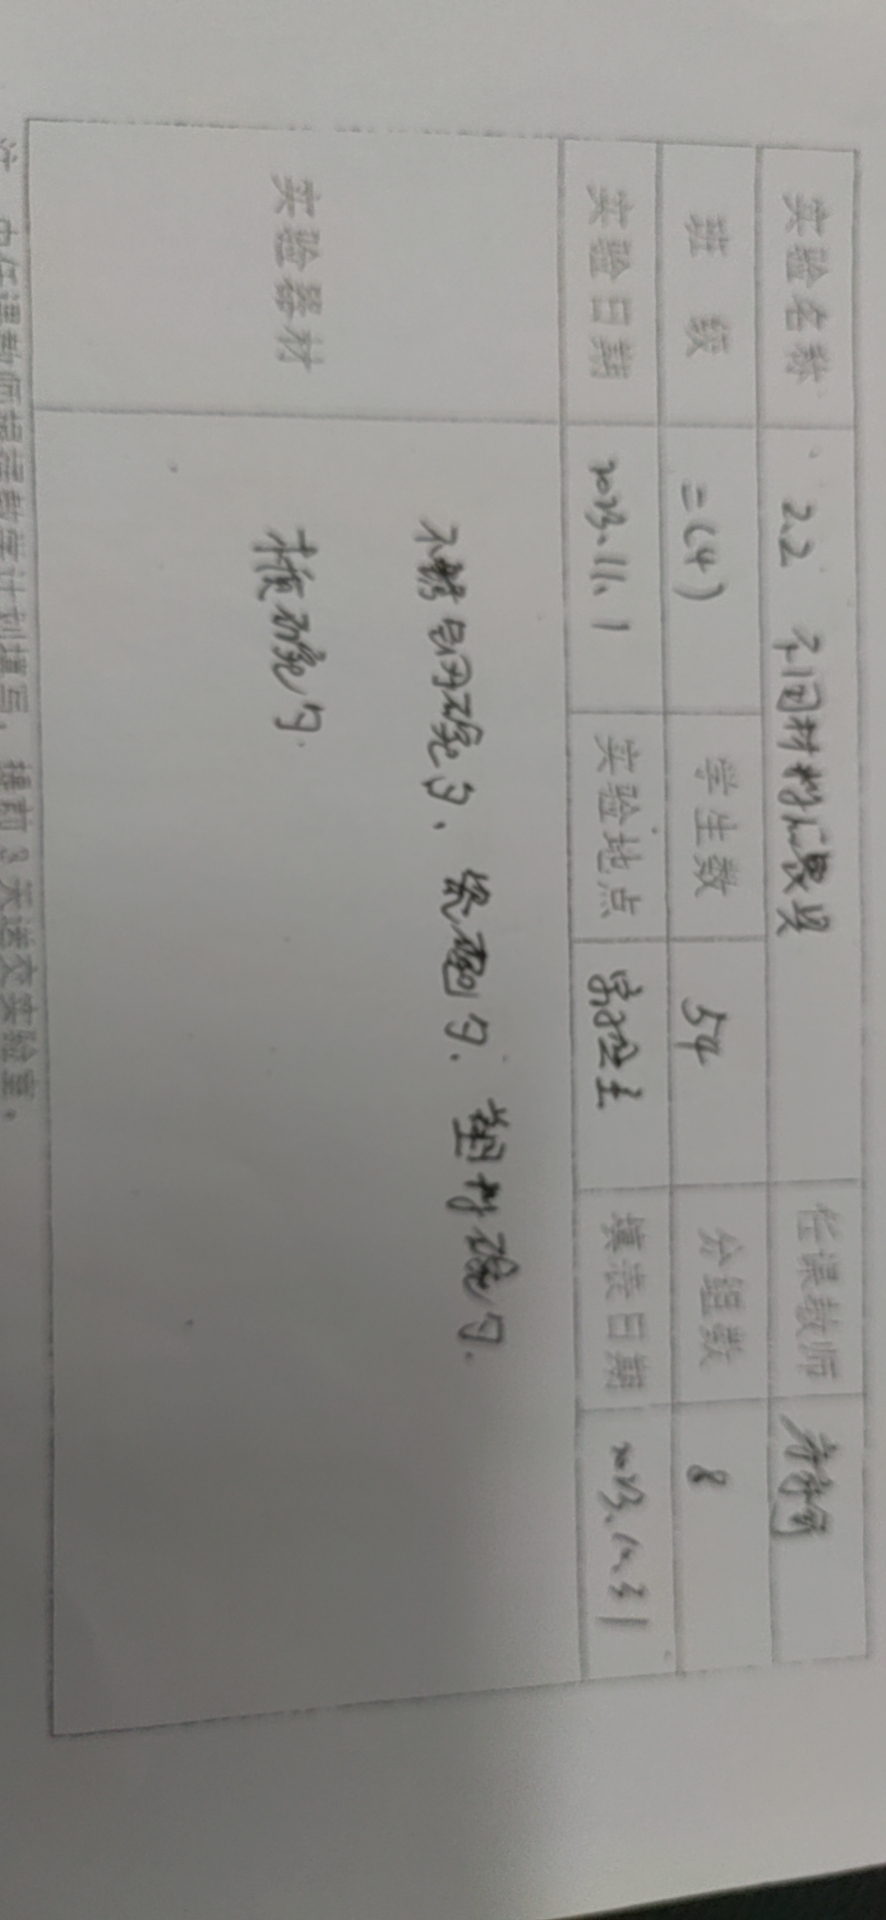 实验名称 2.2 不同材料的餐具 任课教师
班 级 二(4) 学生数 54 分组数 8
实验日期 2023.11.1 实验地点 实验室 填表日期 2023.10.31
实验器材 不锈钢碗勺、瓷碗勺、塑料碗勺.
碗勺.
注 由任课教师根据教学计划填写，提前3天送交实验室。